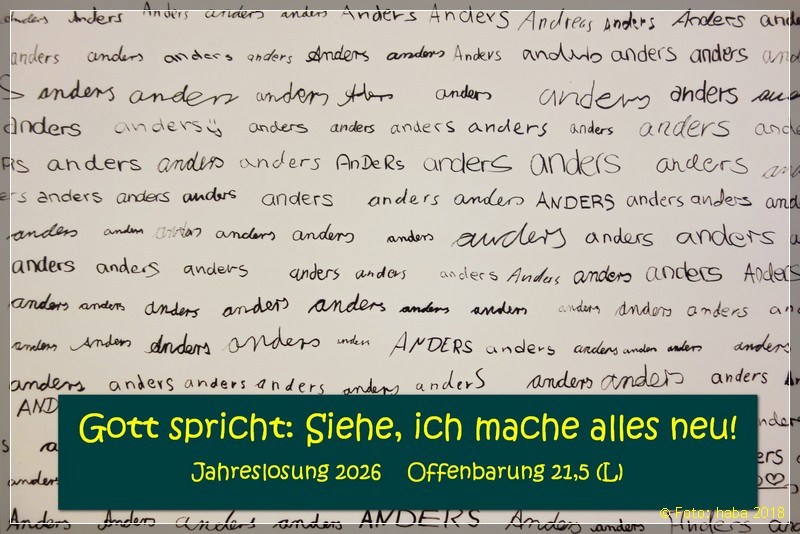 anders Anders Anders anders anders Anders Anders Andreas Anders anders Anders
anders anders anders anders Anders anders Anders anders anders
anders anders anders anders anders anders
Anders anders anders anders anders anders anders anders
anders anders anders AnDeRs anders anders anders
anders anders anders anders anders anders ANDERS anders anders
anders anders anders anders anders anders anders anders
anders anders anders anders anders anders Anders anders anders Anders
anders anders anders anders anders anders anders anders anders anders
anders Anders Anders anders anders ANDERS anders anders anders anders anders
anders anders anders anders anders anders anders anders anders
Gott spricht: Siehe, ich mache alles neu!
Jahreslosung 2026 Offenbarung 21,5 (L)
Anders Anders anders anders ANDERS Anders anders Anders
© Foto: haba 2018